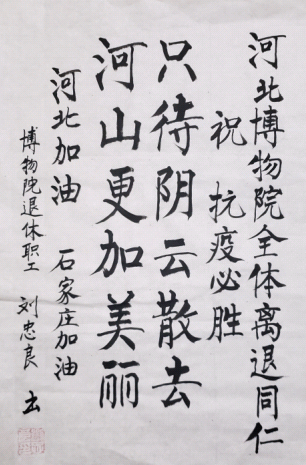 河北博物院全体离退同仁
祝 抗疫必胜
只待阴云散去
河山更加美丽
河北加油 石家庄加油
博物院退休职工 刘忠良 书